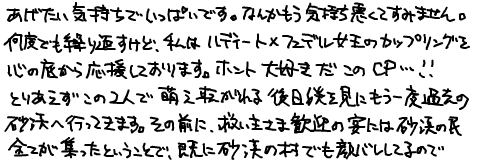 あげたい気持ちでいっぱいです。なんかもう気持ち悪くてすみません。
何度でも繰り返すけど、私はハディート×フェデル女王のカップリングを
心の底から応援しております。ホント大好きだこのCP…!!
とりあえずこの2人で萌え転がれる後日談を見にもう一度過去の
砂漠へ行ってきます。その前に、救い主さま歓迎の宴には砂漠の民
全てが集ったということで、既に砂漠の村でも顔バレしてるので